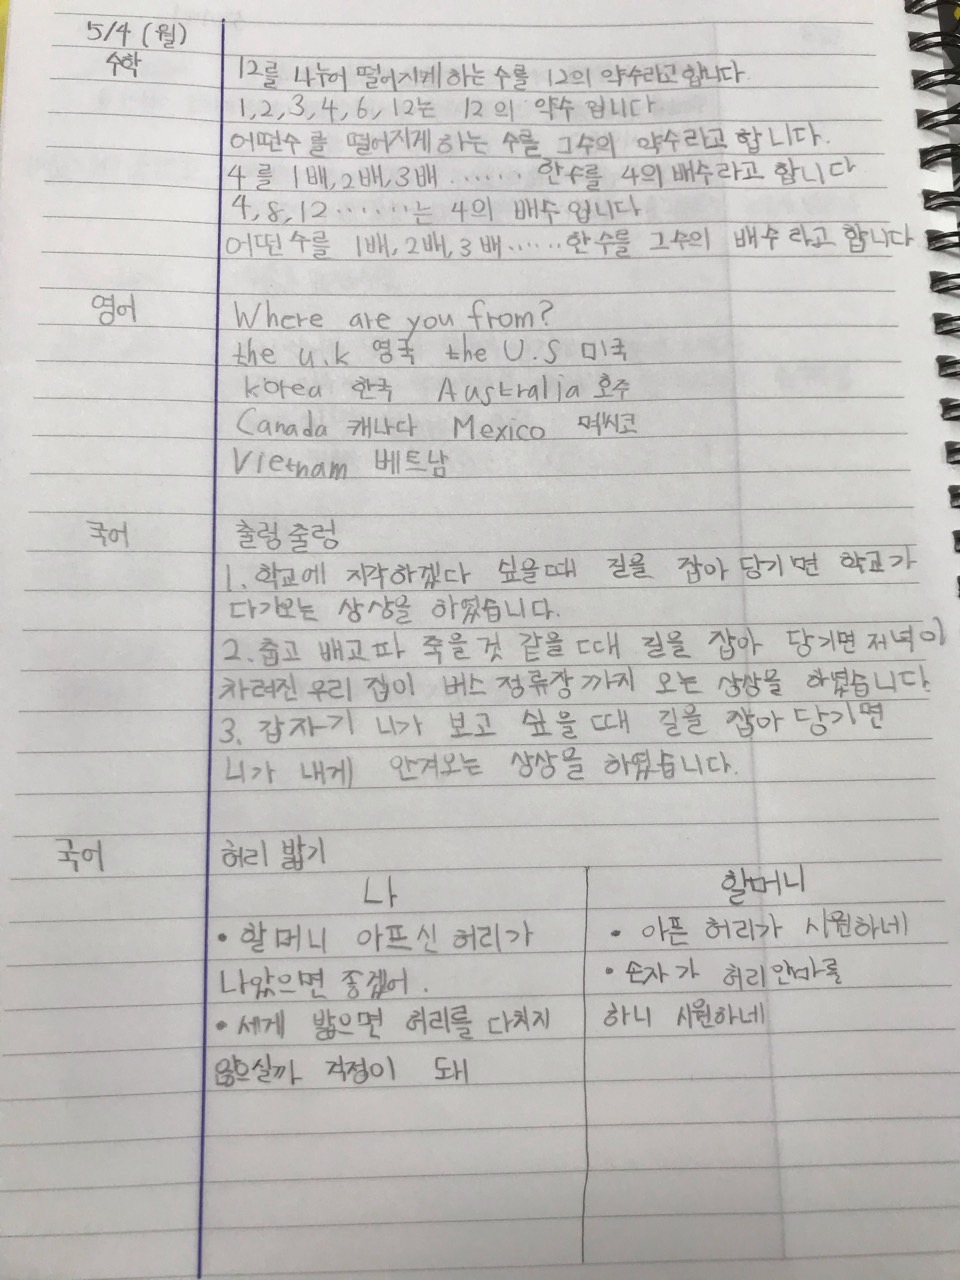 5/4 (월)
수학
12를 나누어 떨어지게 하는 수를 12의 약수라고 합니다.
1, 2, 3, 4, 6, 12는 12의 약수 입니다
어떤수를 떨어지게 하는 수를 그수의 약수라고 합니다.
4를 1배, 2배, 3배 ...... 한수를 4의 배수라고 합니다
4, 8, 12 ......는 4의 배수 입니다
어떤 수를 1배, 2배, 3배 ...... 한 수를 그수의 배수 라고 합니다
영어
Where are you from?
the u.k 영국 the U.S 미국
korea 한국 Australia 호수
Canada 캐나다 Mexico 멕시코
Vietnam 베트남
국어
출렁출렁
1. 학교에 지각하겠다 싶을때 길을 잡아 당기면 학교가
다가오는 상상을 하였습니다.
2. 춥고 배고파 죽을 것 같을 때 길을 잡아 당기면 저녁이
차려진 우리 집이 버스 정류장까지 오는 상상을 하였습니다.
3. 갑자기 니가 보고 싶을 때 길을 잡아 당기면
니가 내게 안겨오는 상상을 하였습니다.
국어
허리 밟기
나
할머니
• 할머니 아프신 허리가
나았으면 좋겠어.
• 세게 밟으면 허리를 다치지
않으실까 걱정이 돼
• 아픈 허리가 시원하네
• 손자가 허리안마를
하니 시원하네